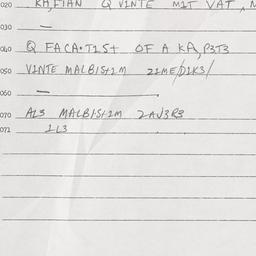 020 KA, FTAN Q VINTE MIT VAT, N
030 —
040 Q FACA•T1S+ OF A KA, P3T3
050 VINTE MALBIS+1M 21ME/D1K3/
060 —
070 A13 MALBIS+1M 2AJ3R3
071 1L3